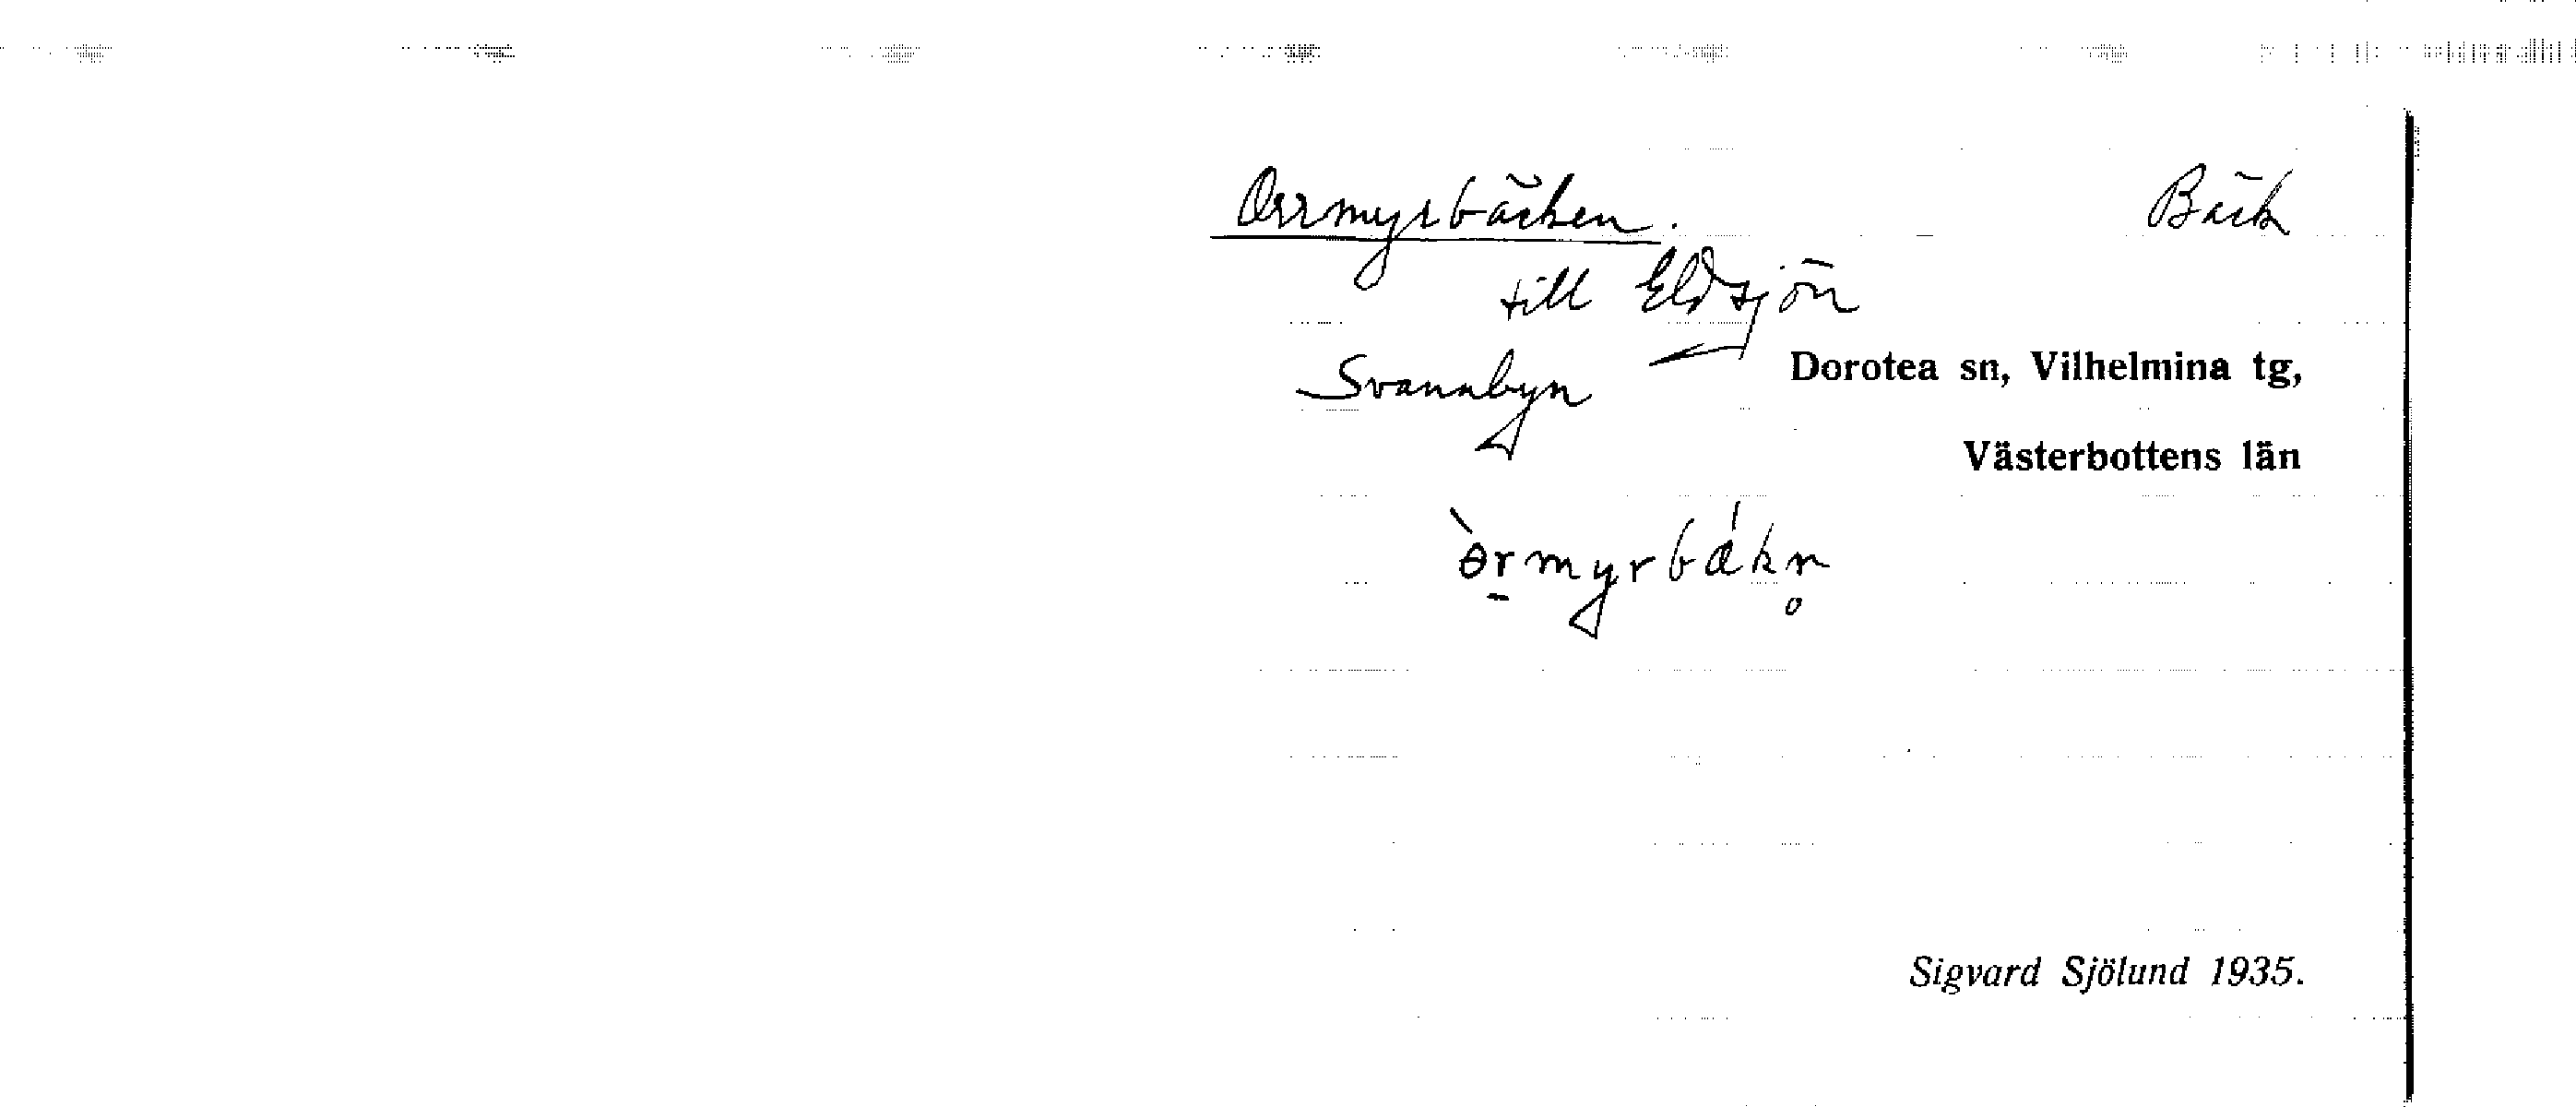 Orrmyrbäcken. Bäck
till Eldsjön
Svannbyn Dorotea sn, Vilhelmina tg,
Västerbottens län
ɵ̀rmyrbákn̥
Sigvard Sjölund 1935.